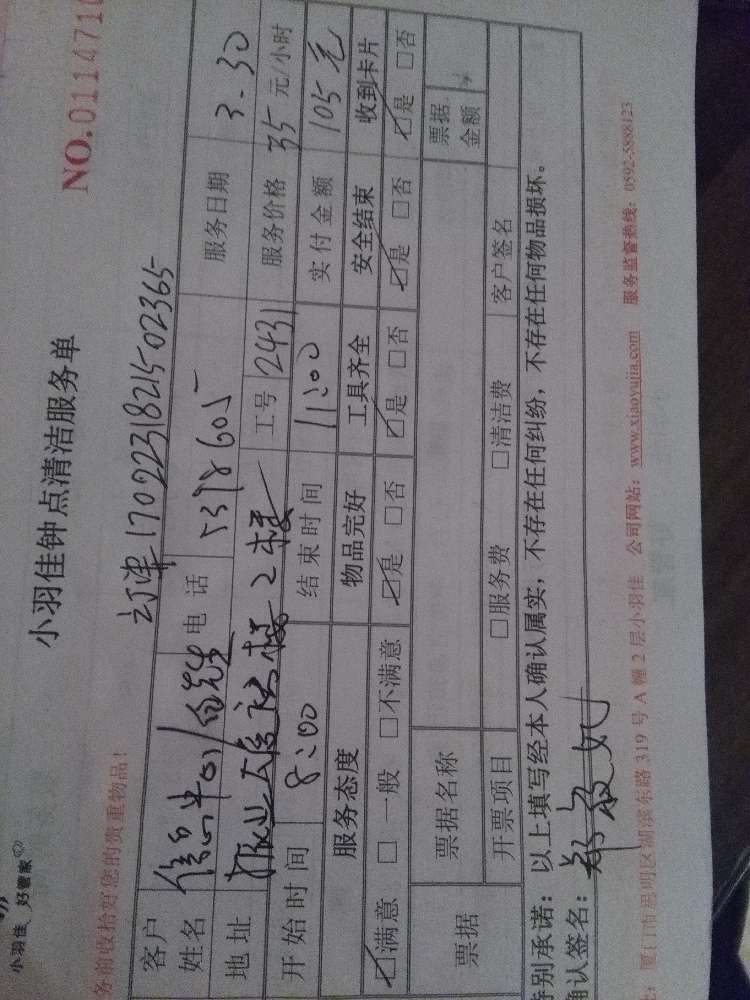 小羽佳 好管家
小羽佳钟点清洁服务单
NO.0114710
务前收拾好您的贵重物品!
订单1702231821502365
客户姓名 电话 5378605 服务日期 3.30
地址 2楼 工号 2431 服务价格 35 元/小时
开始时间 8:00 结束时间 11:00 实付金额 105元
服务态度 物品完好 工具齐全 安全结束 收到卡片
☑满意 □一般 □不满意 ☑是 □否 ☑是 □否 ☑是 □否 ☑是 □否
票据 票据名称 票据金额
开票项目 □服务费 □清洁费 客户签名
特别承诺:以上填写经本人确认属实,不存在任何纠纷,不存在任何物品损坏。
确认签名:
厦门市思明区湖滨东路 319 号 A 幢 2 层小羽佳 公司网站:www.xiaoyujia.com 服务监督热线:0592-5888123